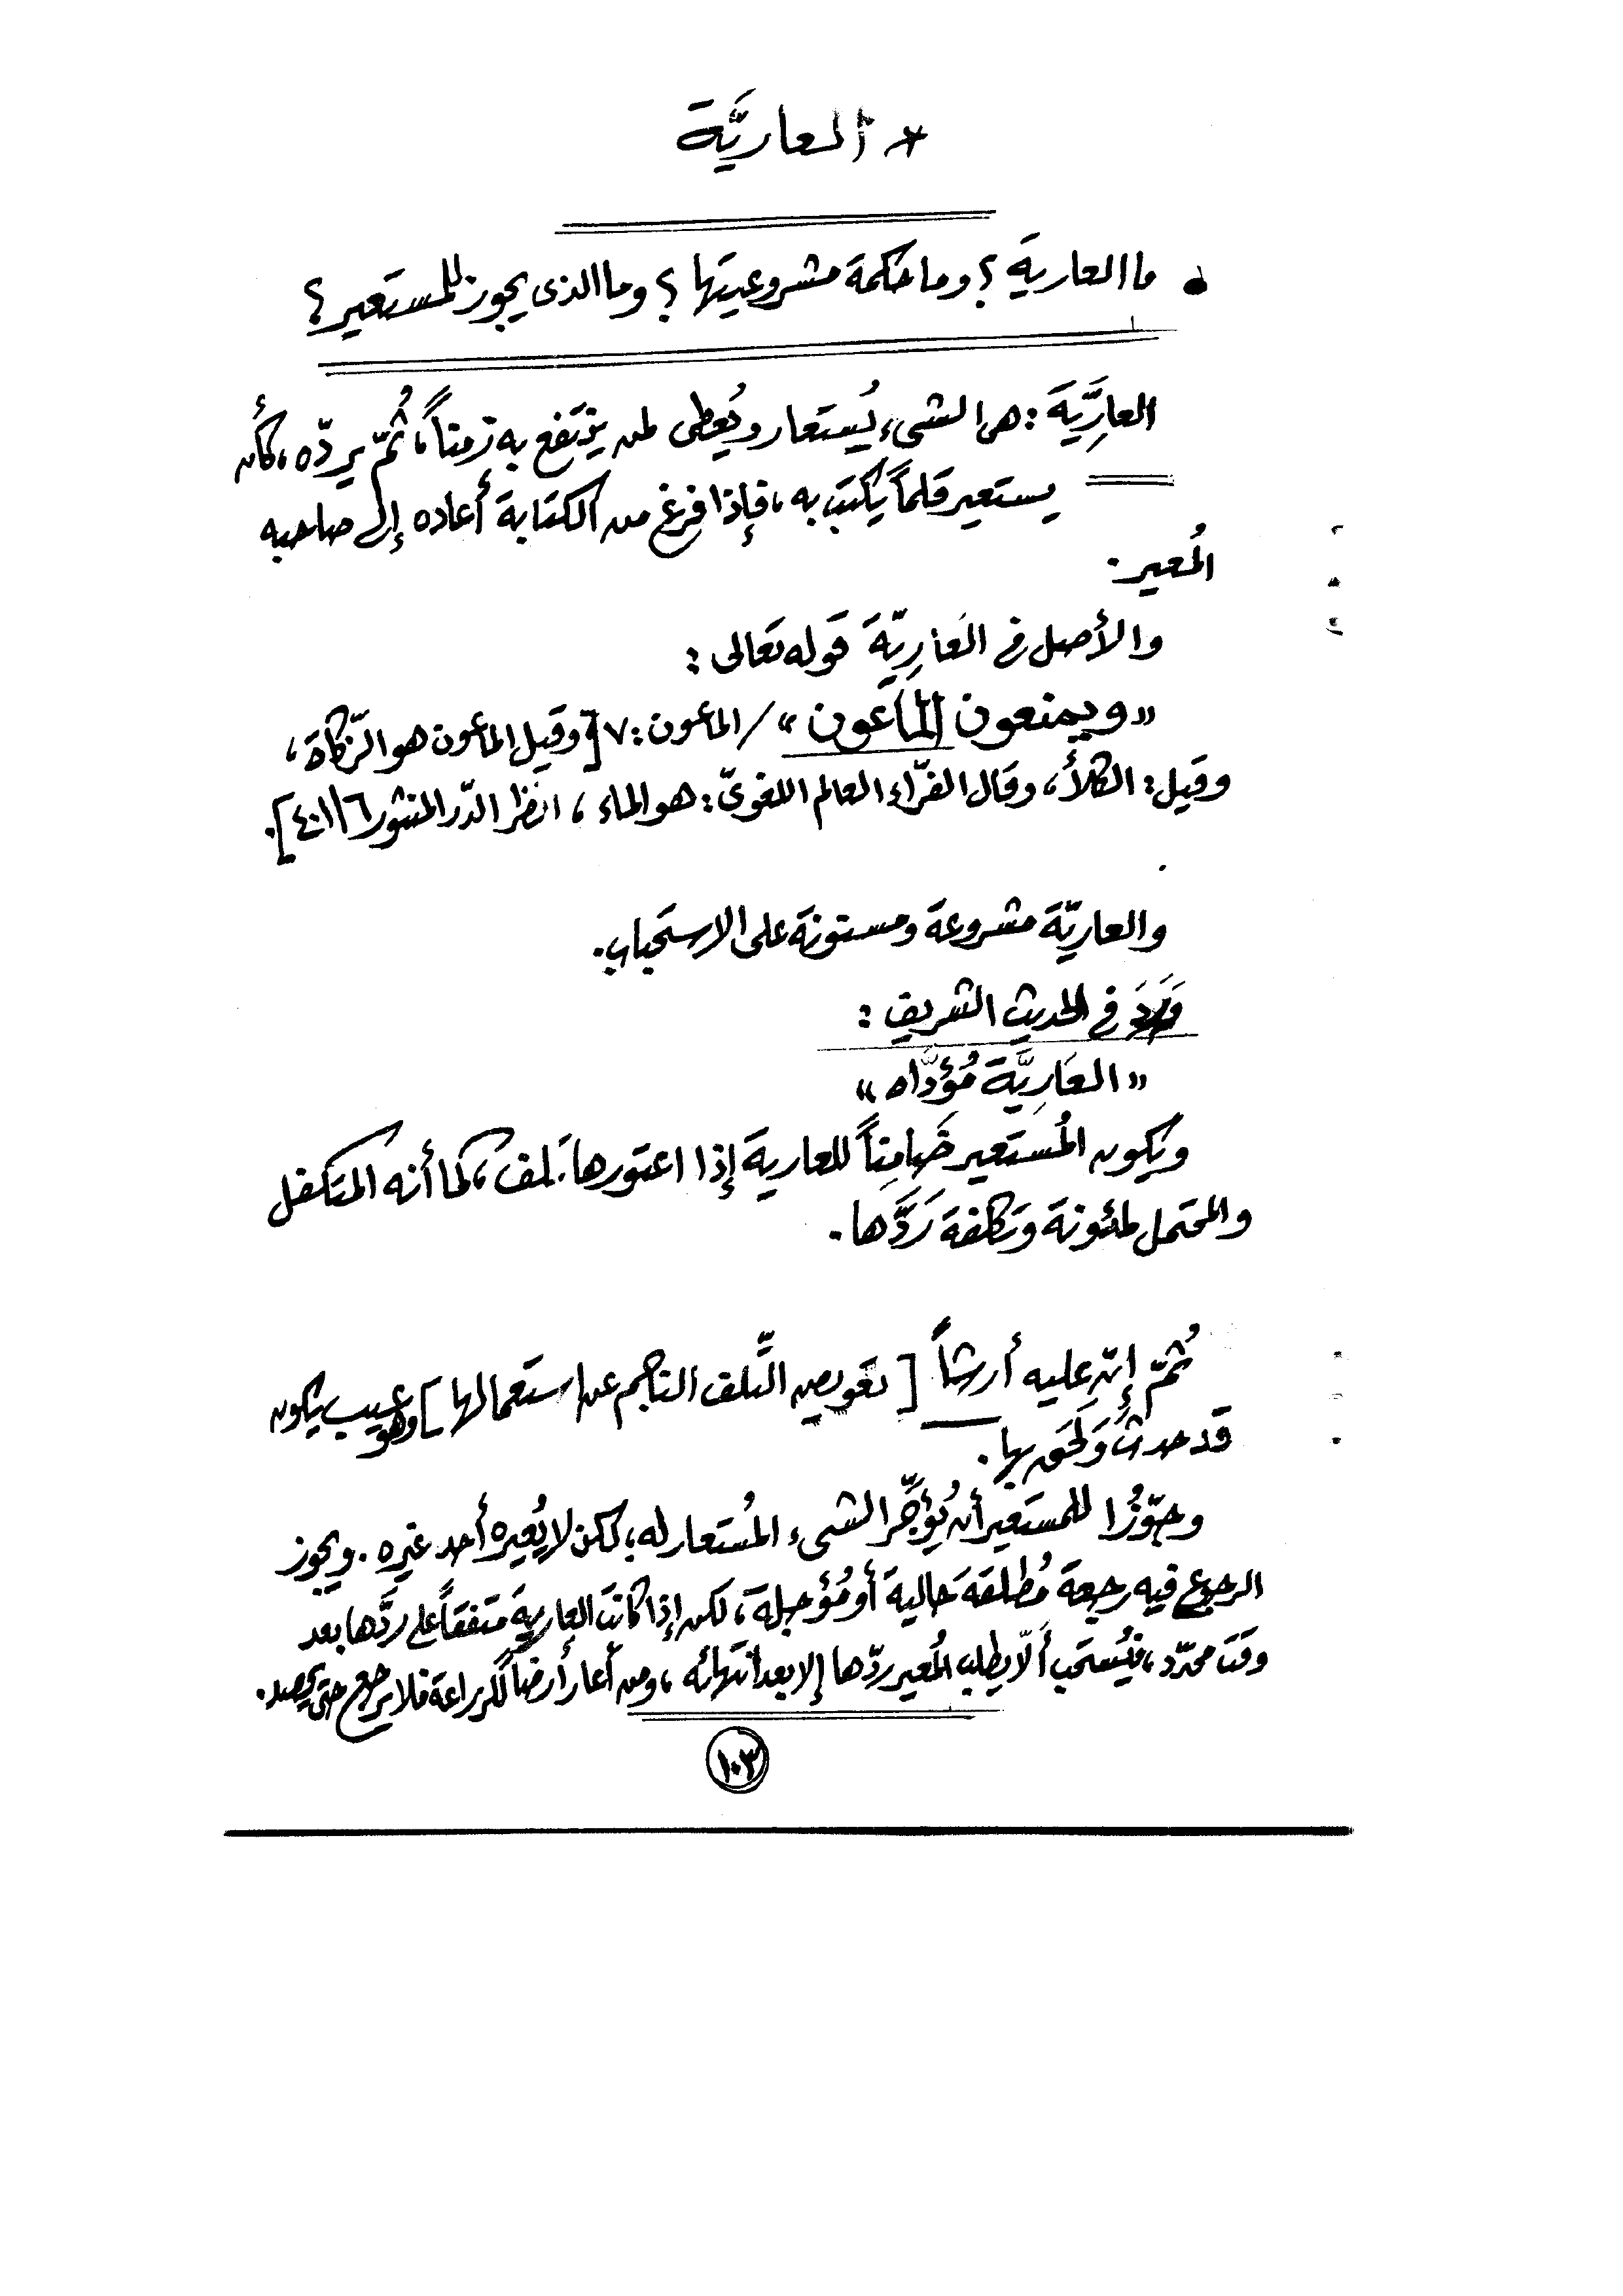 * العاريَّة
• ما العارية ؟ وما حكمة مشروعيتها ؟ وما الذى يجوز للمستعير ؟
العارِيَّة : هى الشىء يُستعار ويُعطى لمن ينتفع به زمناً ، ثُمّ يردّه ، كأن
يستعير قلماً يكتب به ، فإذا فرغ من الكتابة أعاده إلى صاحبه
المُعير .
والأصل فى العَارِيّة قوله تعالى :
« ويمنعون الماعون » / الماعون : ٧ [ وقيل الماعون هو الزّكاة ،
وقيل : الكلأ ، وقال الفرّاء العالم اللغوىّ : هو الماء ، انظر الدّر المنثور ٦ / ٤٠١ ] .
والعاريّة مشروعة ومسنونة على الاستحباب .
وَرَدَ فى الحديث الشريف :
« العَارِيَّة مُؤدَّاه »
ويكون المُستعير ضَامِناً للعارية إذا اعتورها تلف ، كما أنه المتكفل
والمحتمل لمئونة وتكلفة رَدَّها .
ثُمّ إنّ عليه أرشاً [ تعويض التَّلف الناجم عن استعمالها ] وهو عيب يكون
قد حدث وَلَحَق بها .
وجوّزُا للمستعير أن يُؤجِّر الشىء المُستعار له ؛ لكن لا يُعيره أحد غيره . ويجوز
الرجوع فيه رجعة مُطلقة حالية أو مُؤجلة ، لكن إذا كانت العارية متفقاً على ردَّها بعد
وقت محدّد ، فيُستحب ألاّ يطلب المُعير ردّها إلا بعد انتهائه ، ومن أعار أرضاً للزراعة فلا يرجع حتى يحصد .
١٠٣